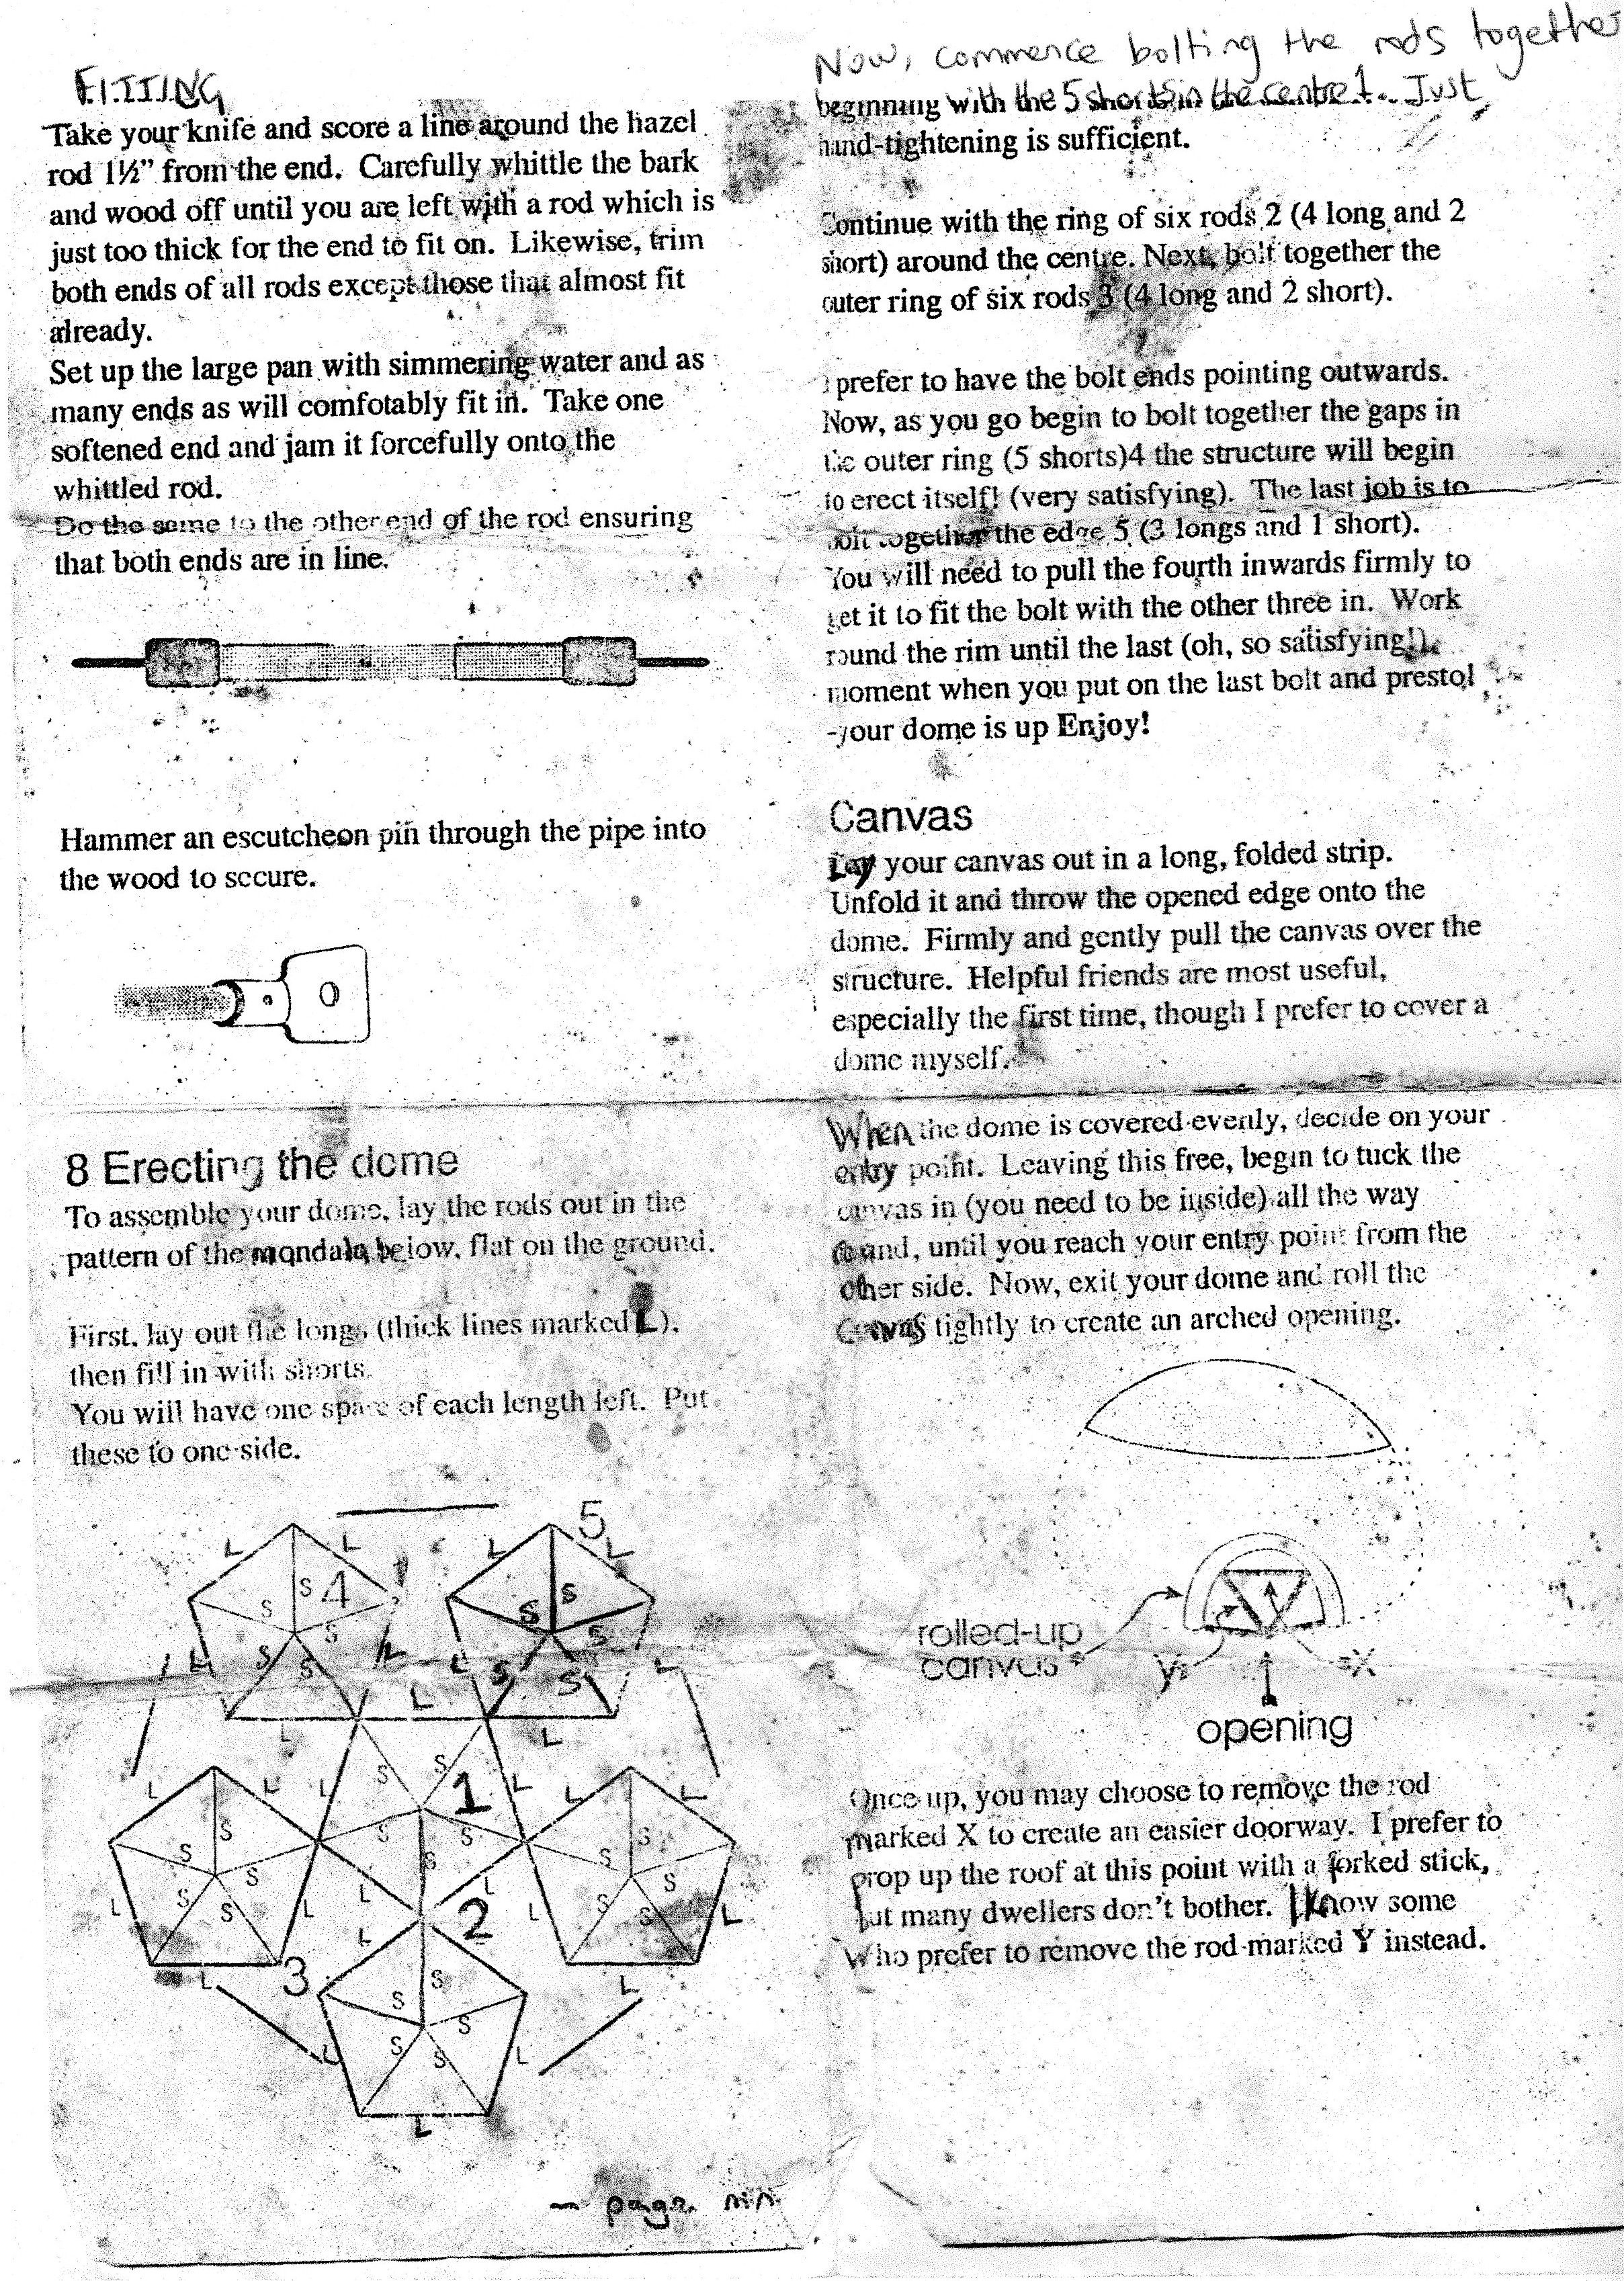 FITTING
Take your knife and score a line around the hazel
rod 1½” from the end. Carefully whittle the bark
and wood off until you are left with a rod which is
just too thick for the end to fit on. Likewise, trim
both ends of all rods except those that almost fit
already.
Set up the large pan with simmering water and as
many ends as will comfotably fit in. Take one
softened end and jam it forcefully onto the
whittled rod.
Do the same to the other end of the rod ensuring
that both ends are in line.
Hammer an escutcheon pin through the pipe into
the wood to secure.
8 Erecting the dome
To assemble your dome, lay the rods out in the
pattern of the mandala below, flat on the ground.
First, lay out the longs (thick lines marked L),
then fill in with shorts.
You will have one spare of each length left. Put
these to one side.
5
L L L L
S 4 S
S S S S
S S S S
L L L L
L
L L
S S 1
L L L L L L
S S S S
S S S S S
S S L L S S
L L L 2 L
L
3
L L
S
S S
S S
L L
L
- page
Now, commence bolting the rods together
beginning with the 5 shorts in the centre 1. Just
hand-tightening is sufficient.
Continue with the ring of six rods 2 (4 long and 2
short) around the centre. Next, bolt together the
outer ring of six rods 3 (4 long and 2 short).
I prefer to have the bolt ends pointing outwards.
Now, as you go begin to bolt together the gaps in
the outer ring (5 shorts)4 the structure will begin
to erect itself! (very satisfying). The last job is to
bolt together the edge 5 (3 longs and 1 short).
You will need to pull the fourth inwards firmly to
get it to fit the bolt with the other three in. Work
round the rim until the last (oh, so satisfying!)
moment when you put on the last bolt and presto!
-your dome is up Enjoy!
Canvas
Lay your canvas out in a long, folded strip.
Unfold it and throw the opened edge onto the
dome. Firmly and gently pull the canvas over the
structure. Helpful friends are most useful,
especially the first time, though I prefer to cover a
dome myself.
When the dome is covered evenly, decide on your
entry point. Leaving this free, begin to tuck the
canvas in (you need to be inside) all the way
round, until you reach your entry point from the
other side. Now, exit your dome and roll the
canvas tightly to create an arched opening.
rolled-up
canvas
Y X
opening
Once up, you may choose to remove the rod
marked X to create an easier doorway. I prefer to
prop up the roof at this point with a forked stick,
but many dwellers don't bother. I know some
Who prefer to remove the rod marked Y instead.